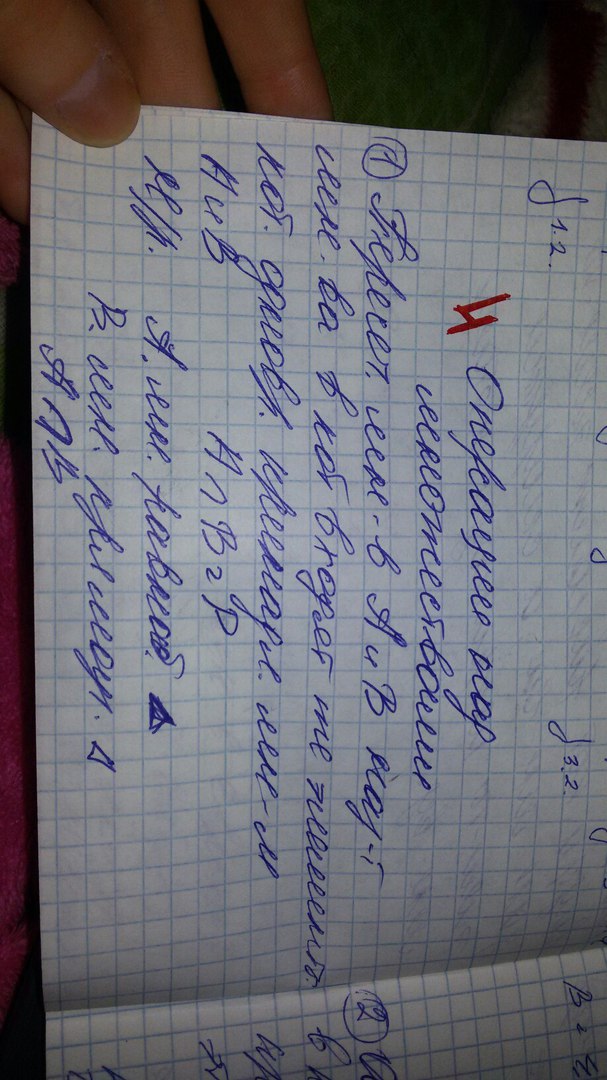 § 1.2.
§ 3.2.
Операции над
множествами
① Пересет. мно-в А и В наз-т
мно-ва в кот входят те элементы.
кот. однов. принадл. мн-м
А и В А ∩ В = Р
А. мн. равноб.
В. мн. прямоуг. Δ
А ∩ В
②
В =